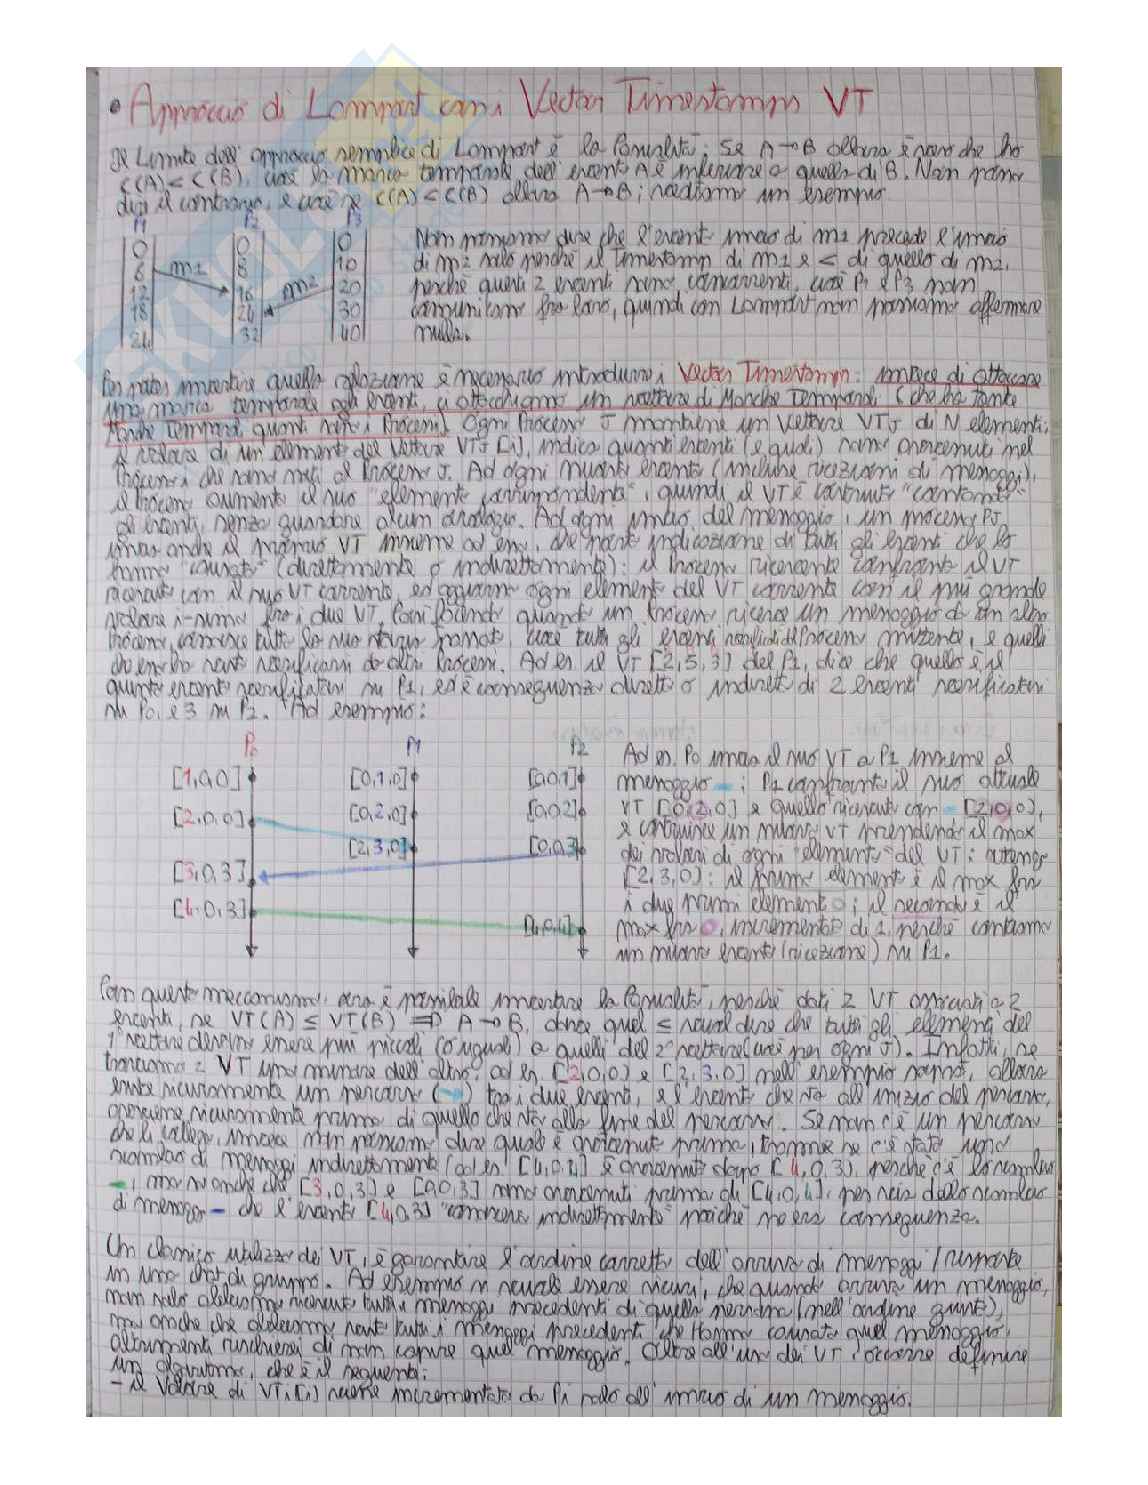 • Approccio di Lamport con i Vector Timestamps VT
Il Limite dell'approccio semplice di Lamport è la Causalità: Se A→B allora è vero che ho
C(A)<C(B), cioè la marca temporale dell'evento A è inferiore a quella di B. Non posso
dire il contrario, e cioè se C(A)<C(B) allora A→B; vediamo un esempio
P1 P2 P3
0 0 0
6 8 10
12 16 20
18 24 30
24 32 40
m1 m2
Non possiamo dire che l'evento invio di m1 precede l'invio
di m2 solo perché il timestamp di m1 è < di quello di m2,
perché questi 2 eventi sono concorrenti, cioè P1 e P3 non
comunicano fra loro, quindi con Lamport non possiamo affermare
nulla.
Per poter invertire quella relazione è necessario introdurre i Vector Timestamp: invece di attaccare
una marca temporale agli eventi, ci attacchiamo un vettore di Marche Temporali (che ha tante
Marche Temporali quanti sono i Processi). Ogni Processo J mantiene un Vettore VTJ di N elementi;
il valore di un elemento del Vettore VTJ[i], indica quanti eventi (e quali) sono avvenuti nel
Processo i che sono noti al Processo J. Ad ogni nuovo evento (incluse ricezioni di messaggi),
il Processo aumenta il suo "elemento corrispondente", quindi il VT è costruito "contando"
gli eventi, senza guardare alcun orologio. Ad ogni invio del messaggio, un processo PJ
invia anche il proprio VT insieme ad esso, che porta indicazione di tutti gli eventi che lo
hanno "causato" (direttamente o indirettamente): il Processo ricevente confronta il VT
ricevuto con il suo VT corrente, ed aggiorna ogni elemento del VT corrente con il più grande
valore i-simo fra i due VT. Così facendo quando un Processo riceve un messaggio da un altro
Processo, conosce tutta la sua storia passata, cioè tutti gli eventi del Processo mittente, e quelli
che esso ha visto verificarsi da altri Processi. Ad es. il VT [2,5,3] del P1, dice che quello è il
quinto evento verificatosi su P1, ed è conseguenza diretta o indiretta di 2 eventi verificatisi
su P0, e 3 su P2. Ad esempio:
P0 P1 P2
[1,0,0] [0,1,0] [0,0,1]
[2,0,0] [0,2,0] [0,0,2]
[2,3,0] [0,0,3]
[3,0,3]
[4,0,3] [4,0,4]
Ad es. P0 invia il suo VT a P1 insieme al
messaggio –; P1 confronta il suo attuale
VT [0,2,0] e quello ricevuto con – [2,0,0),
e costruisce un nuovo VT prendendo il max
dei valori di ogni "elemento" del VT: ottengo
[2,3,0): il primo elemento è il max fra
i due primi elementi ○; il secondo è il
max fra ○, incrementato di 1 perché contiamo
un nuovo evento (ricezione) su P1.
Con questo meccanismo, ora è possibile invertire la Causalità, perché dati 2 VT associati a 2
eventi, se VT(A) ≤ VT(B) ⇒ A→B, dove quel ≤ vuol dire che tutti gli elementi del
1° vettore devono essere più piccoli (o uguali) a quelli del 2° vettore (cioè per ogni J). Infatti, se
troviamo 2 VT uno minore dell'altro, ad es. [2,0,0) e [2,3,0] nell'esempio sopra, allora
esiste sicuramente un percorso (→) tra i due eventi, e l'evento che sta all'inizio del percorso,
avviene sicuramente prima di quello che sta alla fine del percorso. Se non c'è un percorso
che li collega, invece non possiamo dire quale è avvenuto prima, tranne se c'è stato uno
scambio di messaggi indirettamente (ad es. [4,0,4] è avvenuto dopo [4,0,3), perché c'è lo scambio
–, ma so anche che [3,0,3] e [0,0,3] sono avvenuti prima di [4,0,4], per via dello scambio
di messaggi – che l'evento [4,0,3] "conosceva indirettamente" poiché ne era conseguenza.
Un classico utilizzo dei VT, è garantire l'ordine corretto dell'arrivo di messaggi/risposte
in una chat di gruppo. Ad esempio si vuole essere sicuri, che quando arriva un messaggio,
non solo abbiamo ricevuto tutti i messaggi precedenti di quella persona (nell'ordine giusto),
ma anche che abbiamo avuto tutti i messaggi precedenti che Hanno causato quel messaggio,
altrimenti rischierei di non capire quel messaggio. Oltre all'uso dei VT, occorre definire
un algoritmo, che è il seguente:
– il Valore di VTi[i] viene incrementato da Pi solo all'invio di un messaggio.